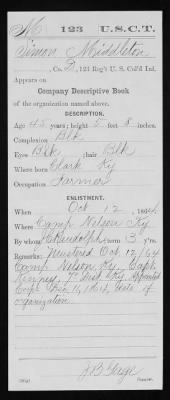 M 123 U.S.C.T.
Simon Middleton
, Co. D, 123 Reg't U. S. Col'd Inf.
Appears on
Company Descriptive Book
of the organization named above.
DESCRIPTION.
Age 45 years; height 5 feet 8 inches.
Complexion Blk
Eyes Blk ; hair Blk
Where born Clark Ky
Occupation Farmer
ENLISTMENT.
When Oct 12 , 1864.
Where Camp Nelson Ky
By whom Randolph ; term 3 y'rs.
Remarks: Mustered Oct. 12/64
Camp Nelson Ky. Capt
Ky.
1864, date of
organization
J B Gage
Copyist.